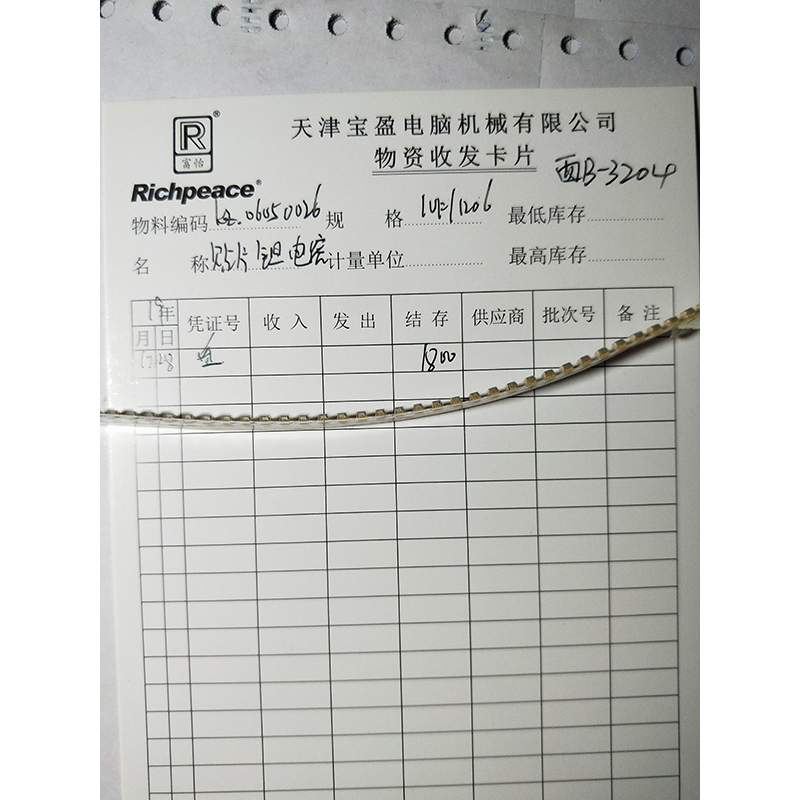 R®
富怡
Richpeace®
天津宝盈电脑机械有限公司
物资收发卡片
西B-3204
物料编码 06450026 规格 1UF/1206 最低库存
名称 贴片钽电容 计量单位 最高库存
19年 凭证号 收入 发出 结存 供应商 批次号 备注
月 日
12.28 1800